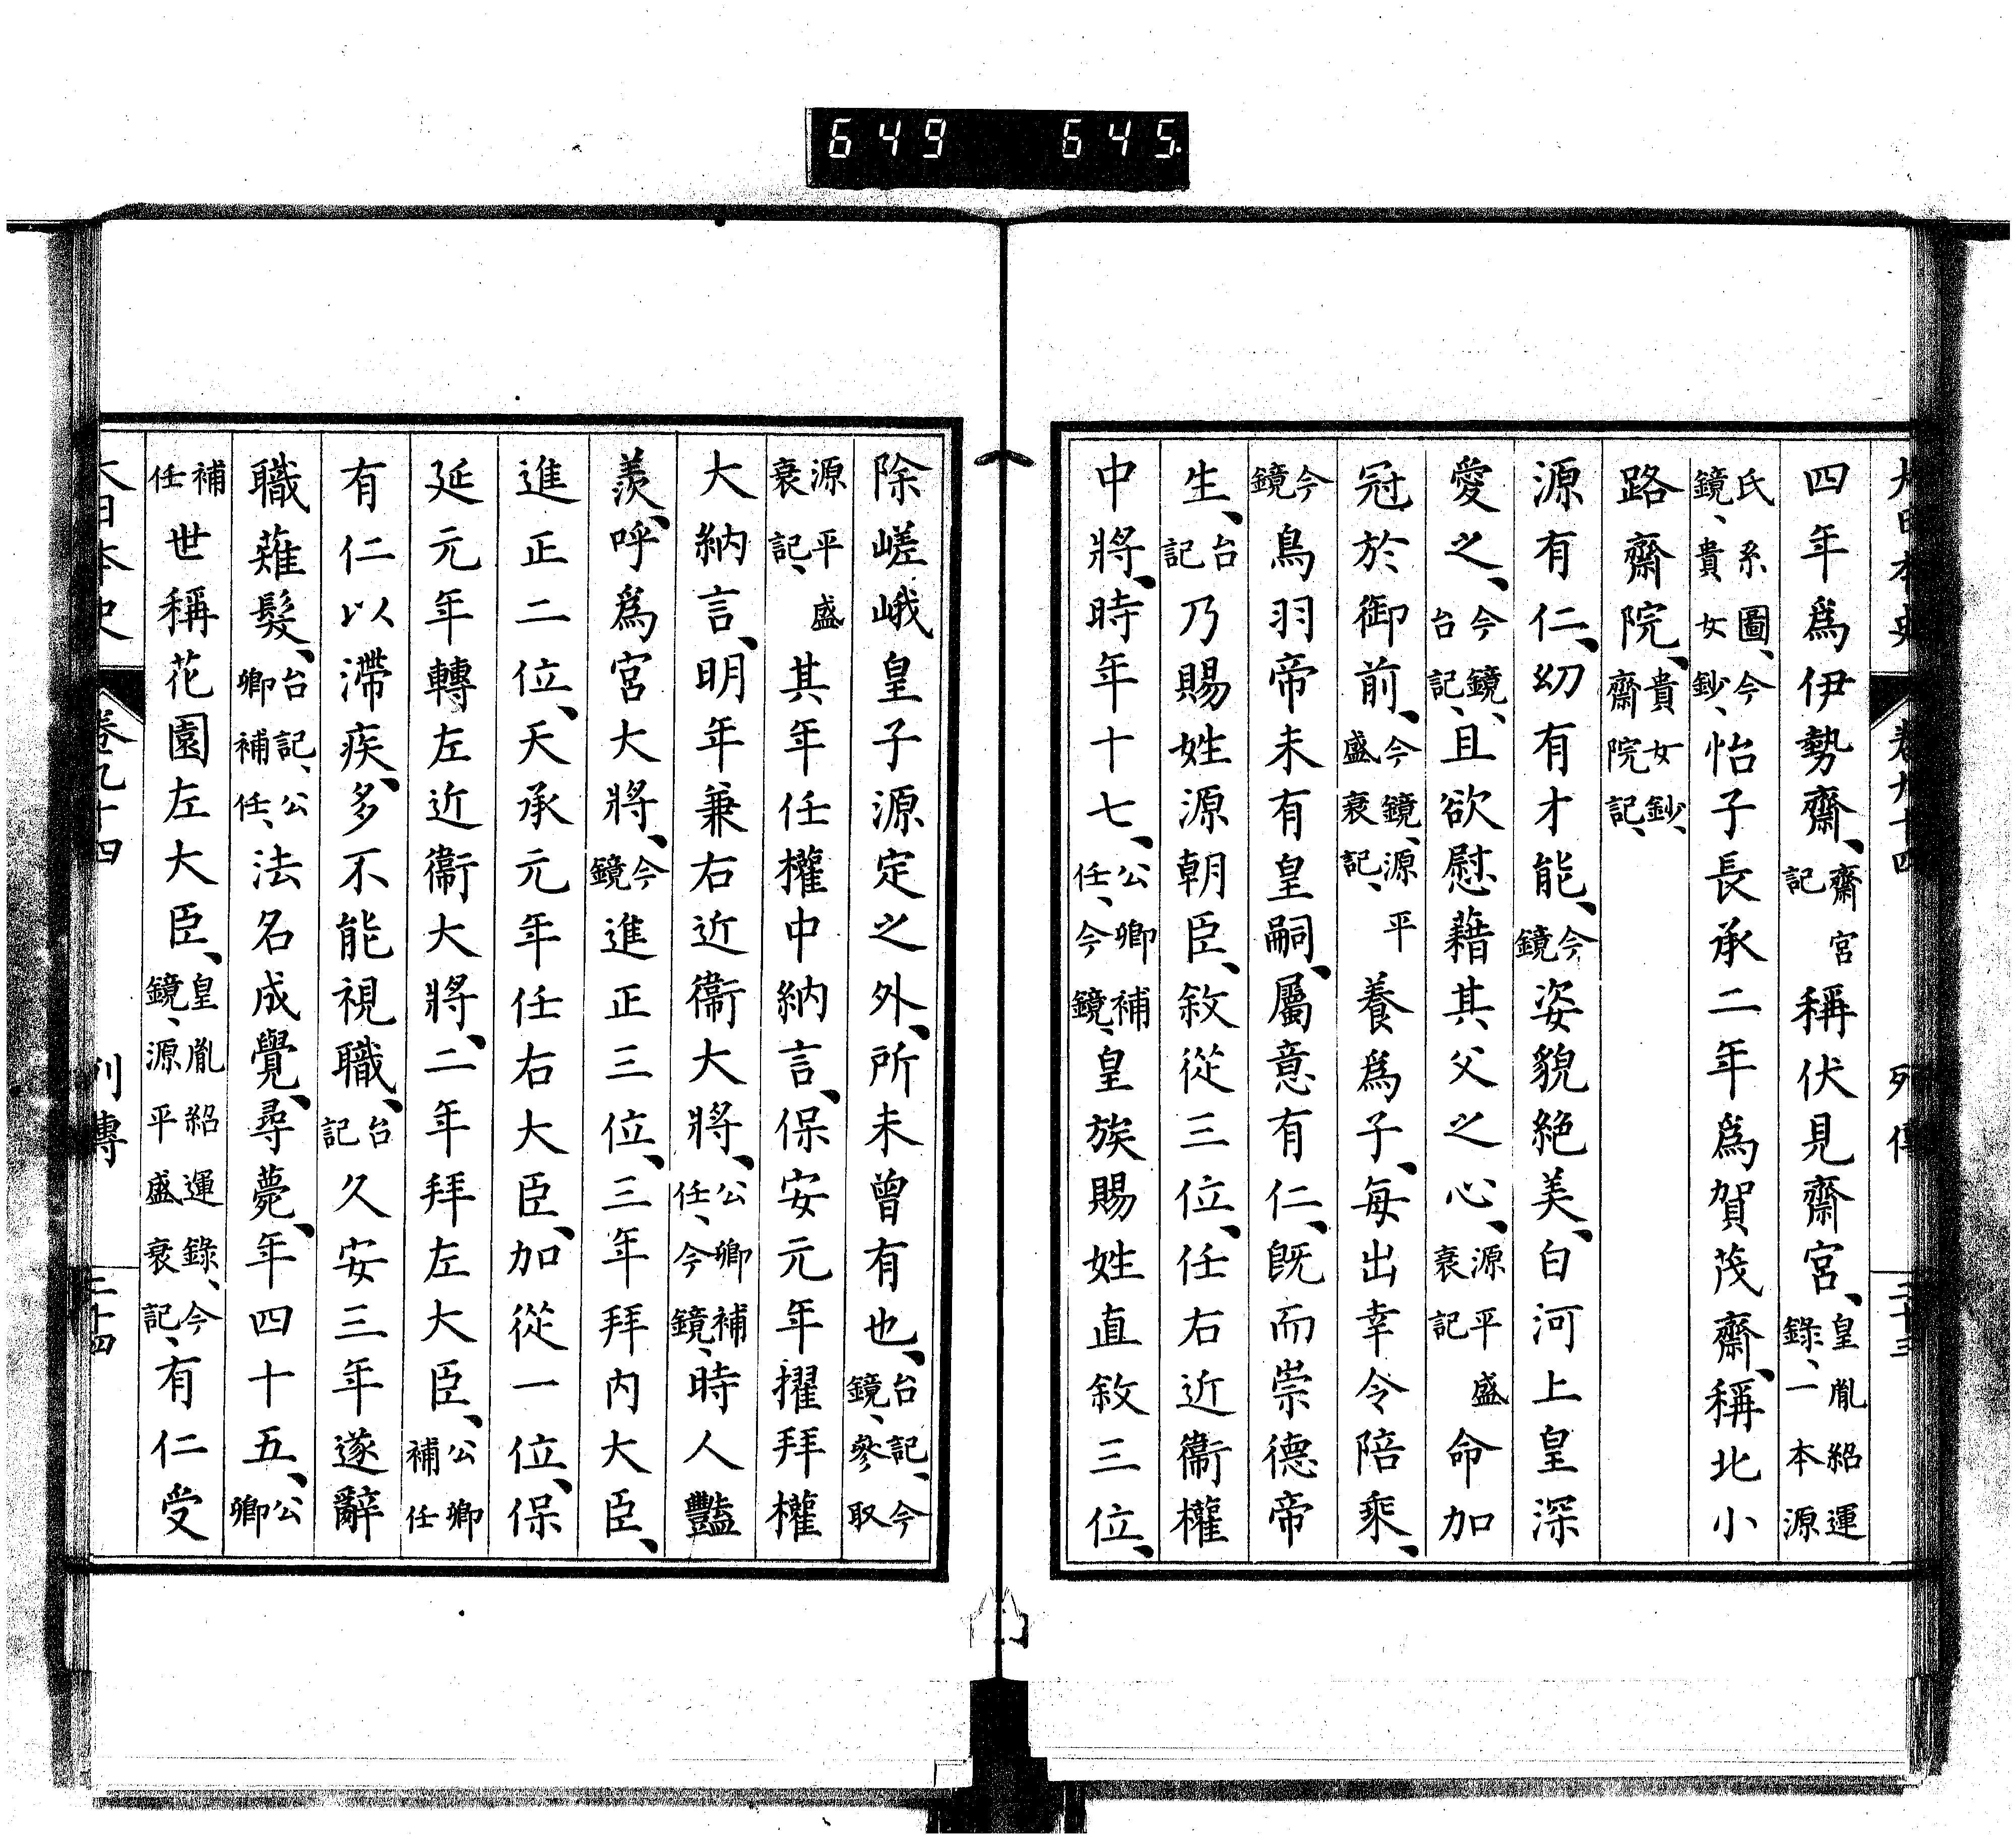 649 645.
大日本史 卷九十四 列傳 二十三
四年爲伊勢齋、齋宮記稱伏見齋宮、皇胤紹運錄、一本源
氏系圖、今鏡、貴女鈔、怡子長承二年爲賀茂齋、稱北小
路齋院、貴女鈔、齋院記、
源有仁、幼有才能、今鏡姿貌絕美、白河上皇深
愛之、今鏡、台記、且欲慰藉其父之心、源平盛衰記命加
冠於御前、今鏡、源平盛衰記、養爲子、每出幸令陪乘、
今鏡鳥羽帝未有皇嗣、屬意有仁、既而崇德帝
生、台記乃賜姓源朝臣、敘從三位、任右近衞權
中將、時年十七、公卿補任、今鏡、皇族賜姓直敘三位、
除嵯峨皇子源定之外、所未曾有也、台記、今鏡、參取
源平盛衰記、其年任權中納言、保安元年擢拜權
大納言、明年兼右近衞大將、公卿補任、今鏡、時人豔
羨、呼爲宮大將、今鏡進正三位、三年拜內大臣、
進正二位、天承元年任右大臣、加從一位、保
延元年轉左近衞大將、二年拜左大臣、公卿補任
有仁以滯疾、多不能視職、台記久安三年遂辭
職薙髮、台記、公卿補任、法名成覺、尋薨、年四十五、公卿
補任世稱花園左大臣、皇胤紹運錄、今鏡、源平盛衰記、有仁受
大日本史 卷九十四 列傳 二十四